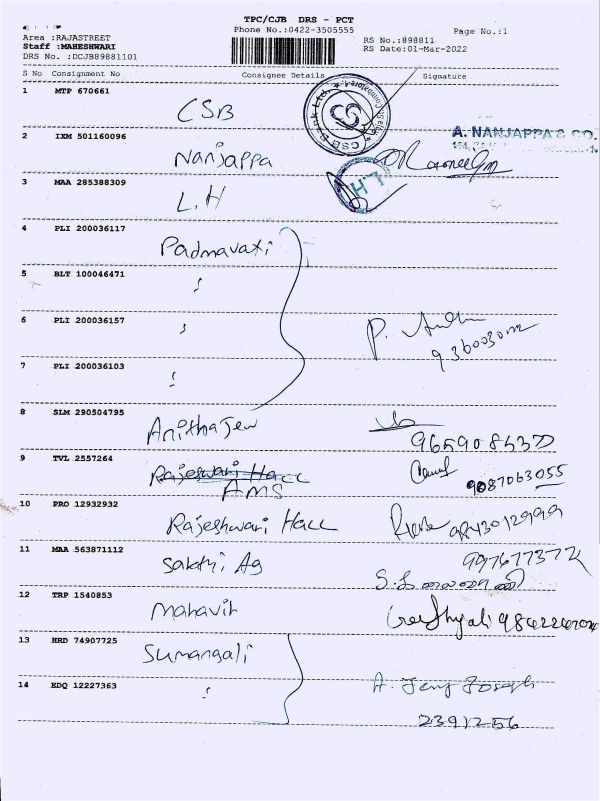 TPC/CJB DRS - PCT
Phone No.:0422-3505555
Page No.:1
Area :RAJASTREET
Staff :MAHESHWARI
DRS No. :DCJB89881101
RS No.:898811
RS Date:01-Mar-2022
S No Consignment No Consignee Details Signature
1 MTP 670661
CSB
CSB Bank Ltd.
2 IXM 501160096
Nanjappa
A. NANJAPPA & CO.
3 MAA 285388309
L.H
L.H
4 PLI 200036117
Padmavati
5 BLT 100046471
6 PLI 200036157
P.
7 PLI 200036103
8 SLM 290504795
Anitha Jew
9 TVL 2557264
Rajeswari Hall
AMS
9087063055
10 PRO 12932932
Rajeshwari Hall
9843012999
11 MAA 563871112
Sakthi Ag
12 TRP 1540853
Mahavir
13 HRD 74907725
Sumangali
14 EDQ 12227363
A. Jeny Joseph
2391256